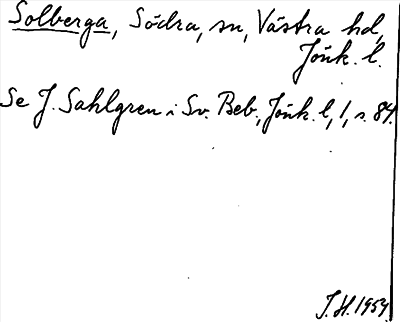 Solberga, Södra, sn, Västra hd,
Jönk. l.
Se J. Sahlgren i Sv. Beb., Jönk. l, 1, s. 84.
J. H. 1954.